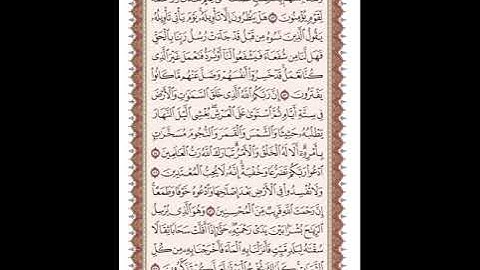 لِّقَوْمٍ يُؤْمِنُونَ ۝ هَلْ يَنظُرُونَ إِلَّا تَأْوِيلَهُۥ يَوْمَ يَأْتِي تَأْوِيلُهُۥ
يَقُولُ ٱلَّذِينَ نَسُوهُ مِن قَبْلُ قَدْ جَآءَتْ رُسُلُ رَبِّنَا بِٱلْحَقِّ
فَهَل لَّنَا مِن شُفَعَآءَ فَيَشْفَعُوا۟ لَنَآ أَوْ نُرَدُّ فَنَعْمَلَ غَيْرَ ٱلَّذِى
كُنَّا نَعْمَلُ قَدْ خَسِرُوٓا۟ أَنفُسَهُمْ وَضَلَّ عَنْهُم مَّا كَانُوا۟
يَفْتَرُونَ ۝ إِنَّ رَبَّكُمُ ٱللَّهُ ٱلَّذِى خَلَقَ ٱلسَّمَٰوَٰتِ وَٱلْأَرْضَ
فِى سِتَّةِ أَيَّامٍ ثُمَّ ٱسْتَوَىٰ عَلَى ٱلْعَرْشِ يُغْشِى ٱلَّيْلَ ٱلنَّهَارَ
يَطْلُبُهُۥ حَثِيثًا وَٱلشَّمْسَ وَٱلْقَمَرَ وَٱلنُّجُومَ مُسَخَّرَٰتٍۭ
بِأَمْرِهِۦٓ أَلَا لَهُ ٱلْخَلْقُ وَٱلْأَمْرُ تَبَارَكَ ٱللَّهُ رَبُّ ٱلْعَٰلَمِينَ ۝
ٱدْعُوا۟ رَبَّكُمْ تَضَرُّعًا وَخُفْيَةً إِنَّهُۥ لَا يُحِبُّ ٱلْمُعْتَدِينَ ۝
وَلَا تُفْسِدُوا۟ فِى ٱلْأَرْضِ بَعْدَ إِصْلَٰحِهَا وَٱدْعُوهُ خَوْفًا وَطَمَعًا
إِنَّ رَحْمَتَ ٱللَّهِ قَرِيبٌ مِّنَ ٱلْمُحْسِنِينَ ۝ وَهُوَ ٱلَّذِى يُرْسِلُ
ٱلرِّيَٰحَ بُشْرًۢا بَيْنَ يَدَىْ رَحْمَتِهِۦ حَتَّىٰٓ إِذَآ أَقَلَّتْ سَحَابًا ثِقَالًا
سُقْنَٰهُ لِبَلَدٍ مَّيِّتٍ فَأَنزَلْنَا بِهِ ٱلْمَآءَ فَأَخْرَجْنَا بِهِۦ مِن كُلِّ